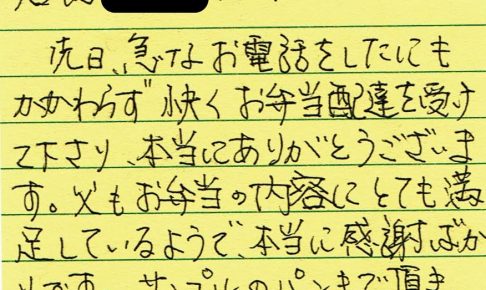 先日、急なお電話をしたにも
かかわらず快くお弁当配達を受け
て下さり、本当にありがとうございま
す。父もお弁当の内容にとても満
足しているようで、本当に感謝ばか
りです。サンプルのパンまで頂き